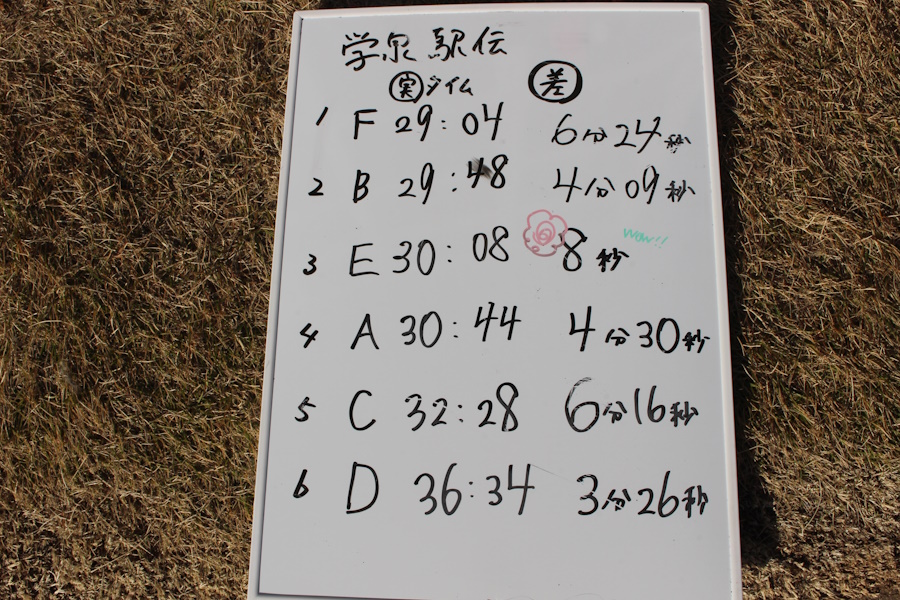 学泉 駅伝
実タイム 差
1 F 29:04 6分24秒
2 B 29:48 4分09秒
3 E 30:08 8秒 wow!!
4 A 30:44 4分30秒
5 C 32:28 6分16秒
6 D 36:34 3分26秒